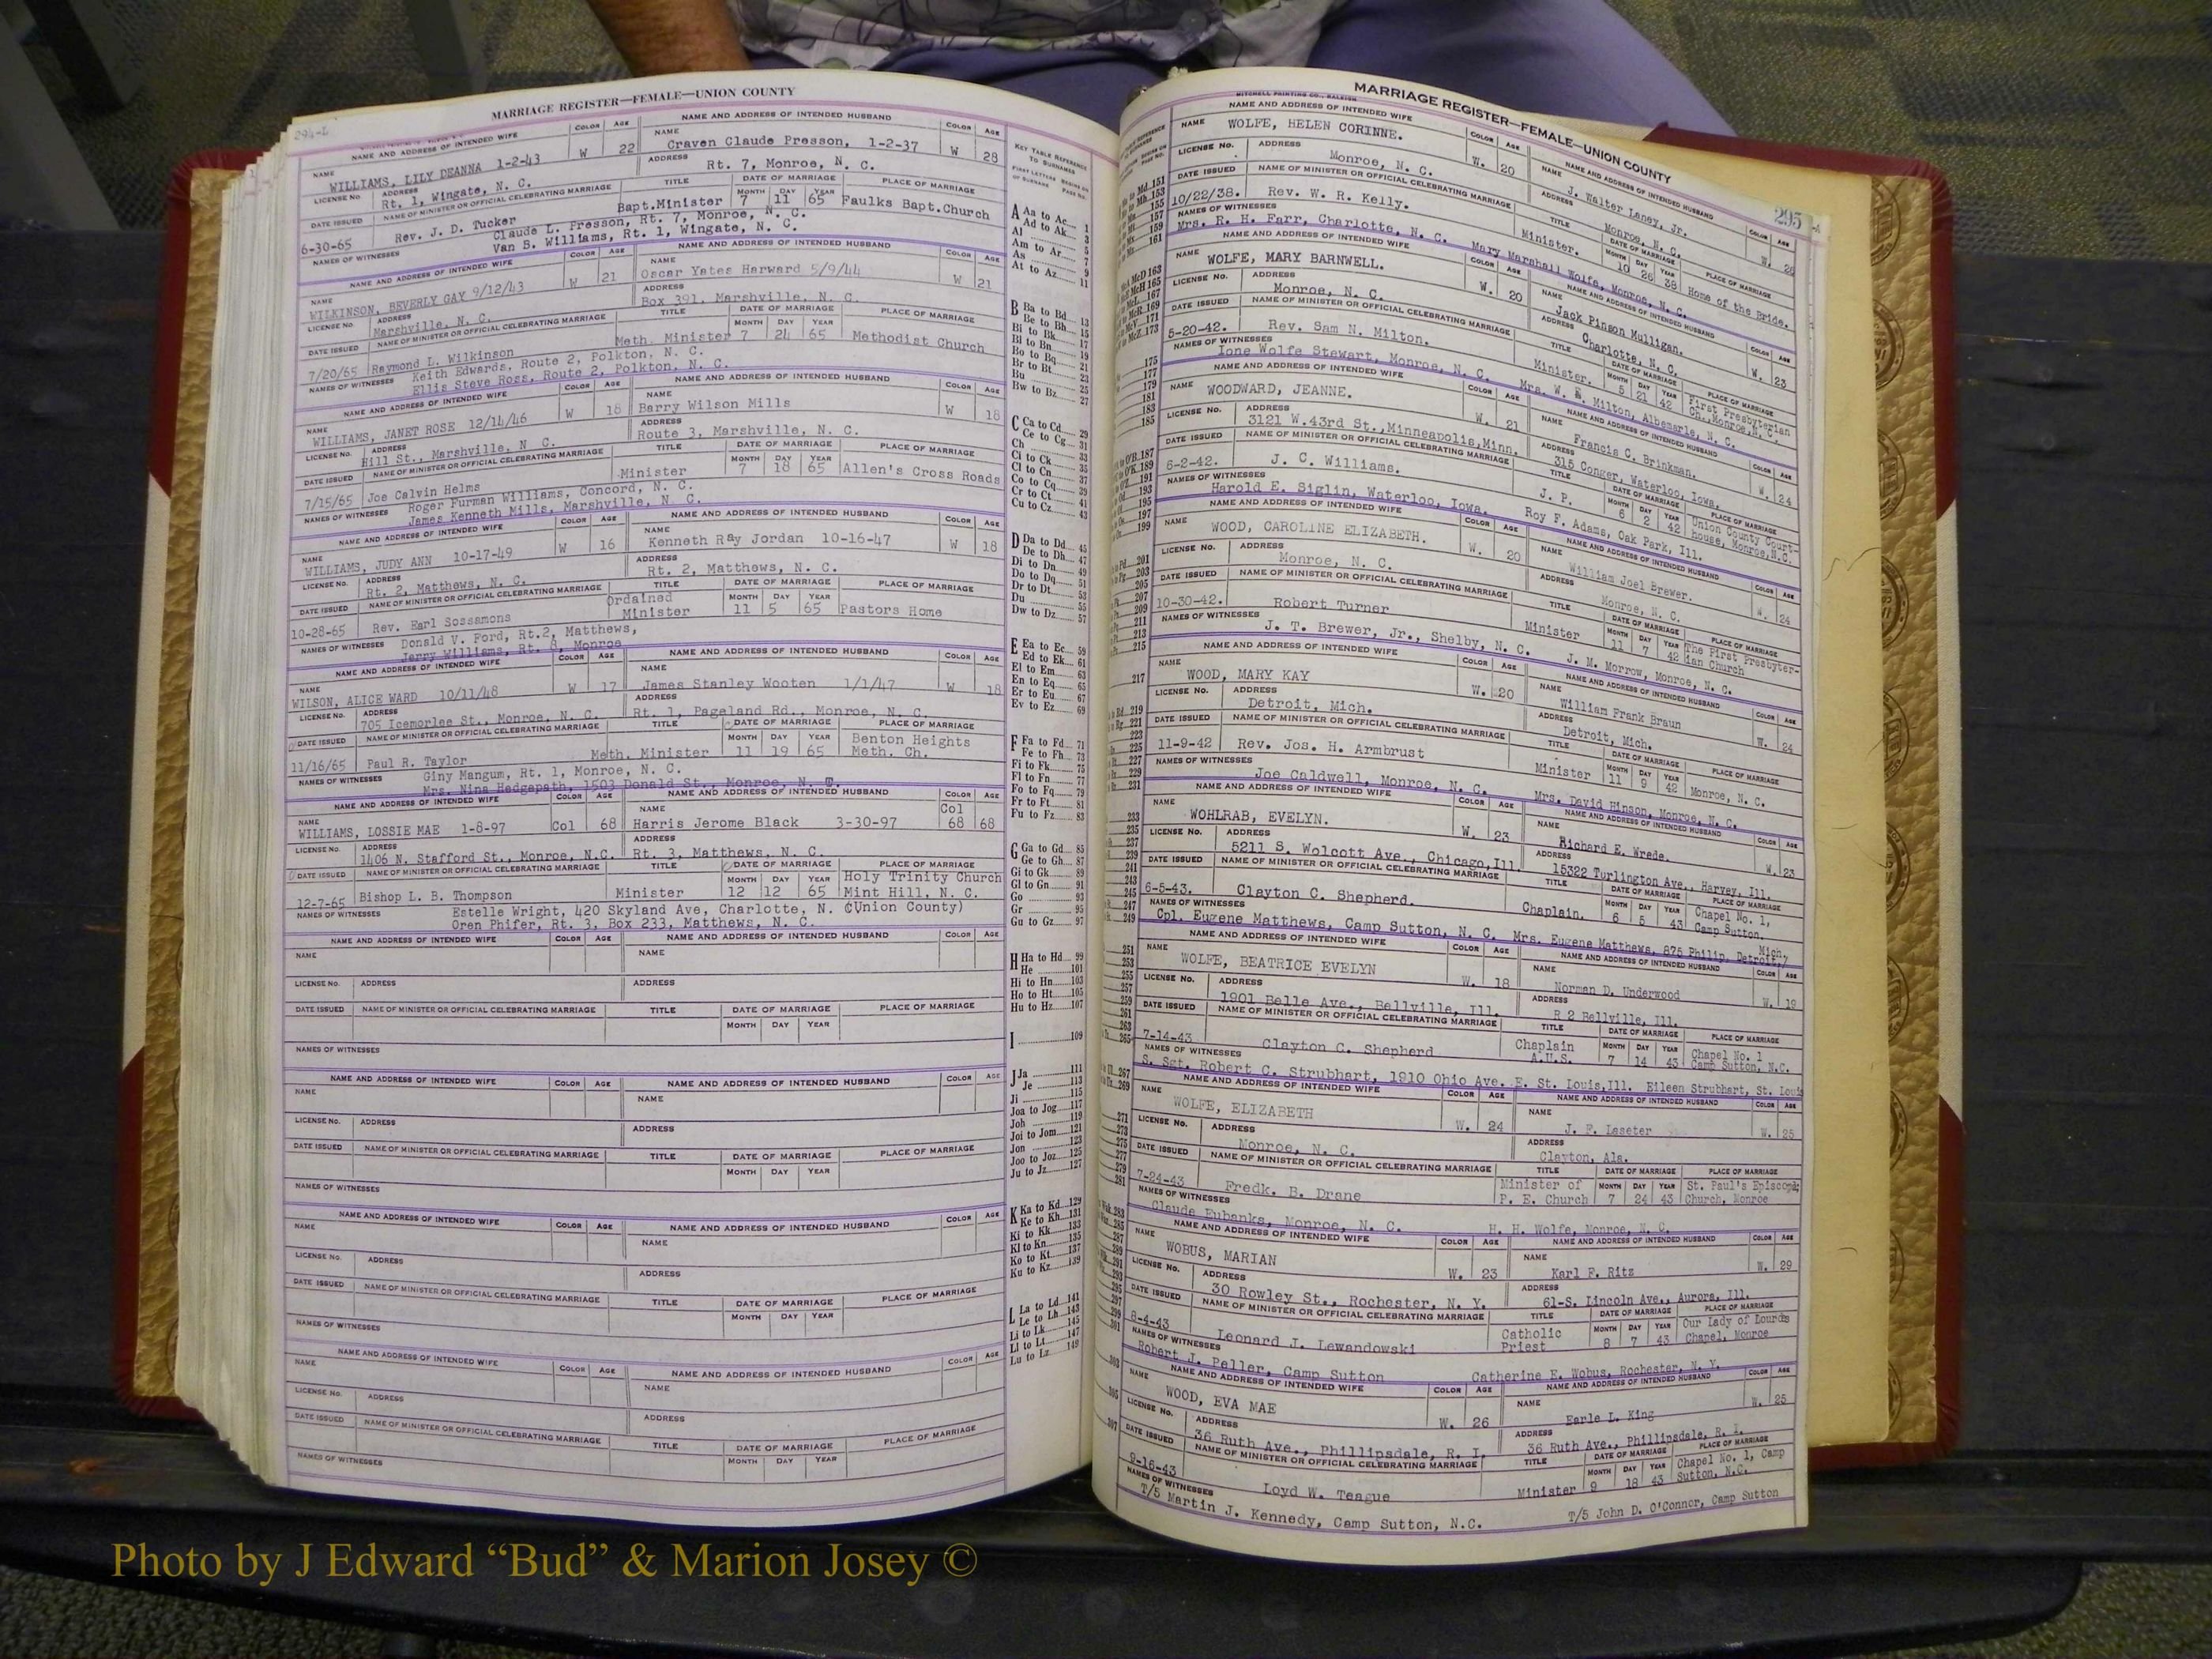 294-L
MARRIAGE REGISTER—FEMALE—UNION COUNTY
NAME AND ADDRESS OF INTENDED WIFE COLOR AGE NAME AND ADDRESS OF INTENDED HUSBAND COLOR AGE
NAME WILLIAMS, LILY DEANNA 1-2-43 W 22 NAME Craven Claude Presson, 1-2-37 W 28
LICENSE No. ADDRESS Rt. 1, Wingate, N. C. ADDRESS Rt. 7, Monroe, N. C.
DATE ISSUED NAME OF MINISTER OR OFFICIAL CELEBRATING MARRIAGE TITLE DATE OF MARRIAGE PLACE OF MARRIAGE
MONTH DAY YEAR
6-30-65 Rev. J. D. Tucker Bapt.Minister 7 11 65 Faulks Bapt.Church
NAMES OF WITNESSES Claude L. Presson, Rt. 7, Monroe, N. C.
Van S. Williams, Rt. 1, Wingate, N. C.
NAME AND ADDRESS OF INTENDED WIFE COLOR AGE NAME AND ADDRESS OF INTENDED HUSBAND COLOR AGE
NAME WILKINSON, BEVERLY GAY 9/12/43 W 21 NAME Oscar Yates Harward 5/9/44 W 21
LICENSE No. ADDRESS Marshville, N. C. ADDRESS Box 391, Marshville, N. C.
DATE ISSUED NAME OF MINISTER OR OFFICIAL CELEBRATING MARRIAGE TITLE DATE OF MARRIAGE PLACE OF MARRIAGE
MONTH DAY YEAR
7/20/65 Raymond L. Wilkinson Meth. Minister 7 24 65 Methodist Church
NAMES OF WITNESSES Keith Edwards, Route 2, Polkton, N. C.
Ellis Steve Ross, Route 2, Polkton, N. C.
NAME AND ADDRESS OF INTENDED WIFE COLOR AGE NAME AND ADDRESS OF INTENDED HUSBAND COLOR AGE
NAME WILLIAMS, JANET ROSE 12/14/46 W 18 NAME Barry Wilson Mills W 18
LICENSE No. ADDRESS Hill St., Marshville, N. C. ADDRESS Route 3, Marshville, N. C.
DATE ISSUED NAME OF MINISTER OR OFFICIAL CELEBRATING MARRIAGE TITLE DATE OF MARRIAGE PLACE OF MARRIAGE
MONTH DAY YEAR
7/15/65 Joe Calvin Helms Minister 7 18 65 Allen's Cross Roads
NAMES OF WITNESSES Roger Furman Williams, Concord, N. C.
James Kenneth Mills, Marshville, N. C.
NAME AND ADDRESS OF INTENDED WIFE COLOR AGE NAME AND ADDRESS OF INTENDED HUSBAND COLOR AGE
NAME WILLIAMS, JUDY ANN 10-17-49 W 16 NAME Kenneth Ray Jordan 10-16-47 W 18
LICENSE No. ADDRESS Rt. 2, Matthews, N. C. ADDRESS Rt. 2, Matthews, N. C.
DATE ISSUED NAME OF MINISTER OR OFFICIAL CELEBRATING MARRIAGE TITLE DATE OF MARRIAGE PLACE OF MARRIAGE
Ordained MONTH DAY YEAR
10-28-65 Rev. Earl Sossamons Minister 11 5 65 Pastors Home
NAMES OF WITNESSES Donald V. Ford, Rt.2, Matthews,
Jerry Williams, Rt. 8, Monroe
NAME AND ADDRESS OF INTENDED WIFE COLOR AGE NAME AND ADDRESS OF INTENDED HUSBAND COLOR AGE
NAME WILSON, ALICE WARD 10/11/48 W 17 NAME James Stanley Wooten 1/1/47 W 18
LICENSE No. ADDRESS 705 Icemorlee St., Monroe, N. C. ADDRESS Rt. 1, Pageland Rd., Monroe, N. C.
DATE ISSUED NAME OF MINISTER OR OFFICIAL CELEBRATING MARRIAGE TITLE DATE OF MARRIAGE PLACE OF MARRIAGE
MONTH DAY YEAR Benton Heights
11/16/65 Paul R. Taylor Meth. Minister 11 19 65 Meth. Ch.
NAMES OF WITNESSES Giny Mangum, Rt. 1, Monroe, N. C.
Mrs. Nina Hedgepath, 1503 Donald St., Monroe, N.
NAME AND ADDRESS OF INTENDED WIFE COLOR AGE NAME AND ADDRESS OF INTENDED HUSBAND COLOR AGE
Col
NAME WILLIAMS, LOSSIE MAE 1-8-97 Col 68 NAME Harris Jerome Black 3-30-97 68 68
LICENSE No. ADDRESS 1406 N. Stafford St., Monroe, N.C. ADDRESS Rt. 3, Matthews, N. C.
DATE ISSUED NAME OF MINISTER OR OFFICIAL CELEBRATING MARRIAGE TITLE DATE OF MARRIAGE PLACE OF MARRIAGE
MONTH DAY YEAR Holy Trinity Church
12-7-65 Bishop L. B. Thompson Minister 12 12 65 Mint Hill, N. C.
NAMES OF WITNESSES Estelle Wright, 420 Skyland Ave, Charlotte, N. C (Union County)
Oren Phifer, Rt. 3, Box 233, Matthews, N. C.
NAME AND ADDRESS OF INTENDED WIFE COLOR AGE NAME AND ADDRESS OF INTENDED HUSBAND COLOR AGE
NAME NAME
LICENSE No. ADDRESS ADDRESS
DATE ISSUED NAME OF MINISTER OR OFFICIAL CELEBRATING MARRIAGE TITLE DATE OF MARRIAGE PLACE OF MARRIAGE
MONTH DAY YEAR
NAMES OF WITNESSES
NAME AND ADDRESS OF INTENDED WIFE COLOR AGE NAME AND ADDRESS OF INTENDED HUSBAND COLOR AGE
NAME NAME
LICENSE No. ADDRESS ADDRESS
DATE ISSUED NAME OF MINISTER OR OFFICIAL CELEBRATING MARRIAGE TITLE DATE OF MARRIAGE PLACE OF MARRIAGE
MONTH DAY YEAR
NAMES OF WITNESSES
NAME AND ADDRESS OF INTENDED WIFE COLOR AGE NAME AND ADDRESS OF INTENDED HUSBAND COLOR AGE
NAME NAME
LICENSE No. ADDRESS ADDRESS
DATE ISSUED NAME OF MINISTER OR OFFICIAL CELEBRATING MARRIAGE TITLE DATE OF MARRIAGE PLACE OF MARRIAGE
MONTH DAY YEAR
NAMES OF WITNESSES
NAME AND ADDRESS OF INTENDED WIFE COLOR AGE NAME AND ADDRESS OF INTENDED HUSBAND COLOR AGE
NAME NAME
LICENSE No. ADDRESS ADDRESS
DATE ISSUED NAME OF MINISTER OR OFFICIAL CELEBRATING MARRIAGE TITLE DATE OF MARRIAGE PLACE OF MARRIAGE
MONTH DAY YEAR
NAMES OF WITNESSES
KEY TABLE REFERENCE
TO SURNAMES
A Aa to Ac 1
Ad to Ak 3
Al 5
Am to Ar 7
As 9
At to Az 11
B Ba to Bd 13
Be to Bh 15
Bi to Bk 17
Bl to Bn 19
Bo to Bq 21
Br to Bt 23
Bu 25
Bw to Bz 27
C Ca to Cd 29
Ce to Cg 31
Ch 33
Ci to Ck 35
Cl to Cn 37
Co to Cq 39
Cr to Ct 41
Cu to Cz 43
D Da to Dd 45
De to Dh 47
Di to Dn 49
Do to Dq 51
Dr to Dt 53
Du 55
Dw to Dz 57
E Ea to Ec 59
Ed to Ek 61
El to Em 63
En to Eq 65
Er to Eu 67
Ev to Ez 69
F Fa to Fd 71
Fe to Fh 73
Fi to Fk 75
Fl to Fn 77
Fo to Fq 79
Fr to Ft 81
Fu to Fz 83
G Ga to Gd 85
Ge to Gh 87
Gi to Gk 89
Gl to Gn 91
Go 93
Gr 95
Gu to Gz 97
H Ha to Hd 99
He 101
Hi to Hn 103
Ho to Ht 105
Hu to Hz 107
I 109
J Ja 111
Je 113
Ji 115
Joa to Jog 117
Joh 119
Joi to Jom 121
Jon 123
Joo to Joz 125
Ju to Jz 127
K Ka to Kd 129
Ke to Kh 131
Ki to Kk 133
Kl to Kn 135
Ko to Kt 137
Ku to Kz 139
L La to Ld 141
Le to Lh 143
Li to Lk 145
Ll to Lt 147
Lu to Lz 149
MARRIAGE REGISTER—FEMALE—UNION COUNTY
295
MITCHELL PRINTING CO., RALEIGH
NAME AND ADDRESS OF INTENDED WIFE COLOR AGE NAME AND ADDRESS OF INTENDED HUSBAND COLOR AGE
NAME WOLFE, HELEN CORINNE. W. 20 NAME J. Walter Laney, Jr. W.
LICENSE No. ADDRESS Monroe, N. C. ADDRESS Monroe, N. C.
DATE ISSUED NAME OF MINISTER OR OFFICIAL CELEBRATING MARRIAGE TITLE DATE OF MARRIAGE PLACE OF MARRIAGE
MONTH DAY YEAR
10/22/38. Rev. W. R. Kelly. Minister. 10 26 38 Home of the Bride.
NAMES OF WITNESSES
Mrs. R. H. Farr, Charlotte, N. C. Mary Marshall Wolfe, Monroe, N. C.
NAME AND ADDRESS OF INTENDED WIFE COLOR AGE NAME AND ADDRESS OF INTENDED HUSBAND COLOR AGE
NAME WOLFE, MARY BARNWELL. W. 20 NAME Jack Pinson Mulligan. W. 23
LICENSE No. ADDRESS Monroe, N. C. ADDRESS Charlotte, N. C.
DATE ISSUED NAME OF MINISTER OR OFFICIAL CELEBRATING MARRIAGE TITLE DATE OF MARRIAGE PLACE OF MARRIAGE
MONTH DAY YEAR First Presbyterian
5-20-42. Rev. Sam N. Milton. Minister. 5 21 42 Ch., Monroe, N. C.
NAMES OF WITNESSES
Ione Wolfe Stewart, Monroe, N. C. Mrs. W. Milton, Albemarle, N. C.
NAME AND ADDRESS OF INTENDED WIFE COLOR AGE NAME AND ADDRESS OF INTENDED HUSBAND COLOR AGE
NAME WOODWARD, JEANNE. W. 21 NAME Francis C. Brinkman. W. 24
LICENSE No. ADDRESS 3121 W.43rd St.,Minneapolis,Minn. ADDRESS 315 Conger, Waterloo, Iowa.
DATE ISSUED NAME OF MINISTER OR OFFICIAL CELEBRATING MARRIAGE TITLE DATE OF MARRIAGE PLACE OF MARRIAGE
MONTH DAY YEAR Union County Court-
6-2-42. J. C. Williams. J. P. 6 2 42 house, Monroe,N.C.
NAMES OF WITNESSES
Harold E. Siglin, Waterloo, Iowa. Roy F. Adams, Oak Park, Ill.
NAME AND ADDRESS OF INTENDED WIFE COLOR AGE NAME AND ADDRESS OF INTENDED HUSBAND COLOR AGE
NAME WOOD, CAROLINE ELIZABETH. W. 20 NAME William Joel Brewer. W. 24
LICENSE No. ADDRESS Monroe, N. C. ADDRESS Monroe, N. C.
DATE ISSUED NAME OF MINISTER OR OFFICIAL CELEBRATING MARRIAGE TITLE DATE OF MARRIAGE PLACE OF MARRIAGE
MONTH DAY YEAR The First Presbyter-
10-30-42. Robert Turner Minister 11 7 42 ian Church
NAMES OF WITNESSES
J. T. Brewer, Jr., Shelby, N. C. J. M. Morrow, Monroe, N. C.
NAME AND ADDRESS OF INTENDED WIFE COLOR AGE NAME AND ADDRESS OF INTENDED HUSBAND COLOR AGE
NAME WOOD, MARY KAY W. 20 NAME William Frank Braun W. 24
LICENSE No. ADDRESS Detroit, Mich. ADDRESS Detroit, Mich.
DATE ISSUED NAME OF MINISTER OR OFFICIAL CELEBRATING MARRIAGE TITLE DATE OF MARRIAGE PLACE OF MARRIAGE
MONTH DAY YEAR
11-9-42 Rev. Jos. H. Armbrust Minister 11 9 42 Monroe, N. C.
NAMES OF WITNESSES
Joe Caldwell, Monroe, N. C. Mrs. David Hinson, Monroe, N. C.
NAME AND ADDRESS OF INTENDED WIFE COLOR AGE NAME AND ADDRESS OF INTENDED HUSBAND COLOR AGE
NAME WOHLRAB, EVELYN. W. 23 NAME Richard E. Wrede. W. 23
LICENSE No. ADDRESS 5211 S. Wolcott Ave., Chicago,Ill ADDRESS 15322 Turlington Ave., Harvey, Ill.
DATE ISSUED NAME OF MINISTER OR OFFICIAL CELEBRATING MARRIAGE TITLE DATE OF MARRIAGE PLACE OF MARRIAGE
MONTH DAY YEAR Chapel No. 1,
6-5-43. Clayton C. Shepherd. Chaplain. 6 5 43 Camp Sutton.
NAMES OF WITNESSES
Cpl. Eugene Matthews, Camp Sutton, N. C. Mrs. Eugene Matthews, 875 Philip, Detroit, Mich.
NAME AND ADDRESS OF INTENDED WIFE COLOR AGE NAME AND ADDRESS OF INTENDED HUSBAND COLOR AGE
NAME WOLFE, BEATRICE EVELYN W. 18 NAME Norman D. Underwood W. 19
LICENSE No. ADDRESS 1901 Belle Ave., Bellville, Ill. ADDRESS R 2 Bellville, Ill.
DATE ISSUED NAME OF MINISTER OR OFFICIAL CELEBRATING MARRIAGE TITLE DATE OF MARRIAGE PLACE OF MARRIAGE
Chaplain MONTH DAY YEAR Chapel No. 1
7-14-43 Clayton C. Shepherd A.U.S. 7 14 43 Camp Sutton, N.C.
NAMES OF WITNESSES
S. Sgt. Robert C. Strubhart, 1910 Ohio Ave. E. St. Louis,Ill. Eileen Strubhart, St. Louis
NAME AND ADDRESS OF INTENDED WIFE COLOR AGE NAME AND ADDRESS OF INTENDED HUSBAND COLOR AGE
NAME WOLFE, ELIZABETH W. 24 NAME J. F. Laseter W. 25
LICENSE No. ADDRESS Monroe, N. C. ADDRESS Clayton, Ala.
DATE ISSUED NAME OF MINISTER OR OFFICIAL CELEBRATING MARRIAGE TITLE DATE OF MARRIAGE PLACE OF MARRIAGE
Minister of MONTH DAY YEAR St. Paul's Episcop;
7-24-43 Fredk. B. Drane P. E. Church 7 24 43 Church, Monroe
NAMES OF WITNESSES
Claude Eubanks, Monroe, N. C. H. H. Wolfe, Monroe, N. C.
NAME AND ADDRESS OF INTENDED WIFE COLOR AGE NAME AND ADDRESS OF INTENDED HUSBAND COLOR AGE
NAME WOBUS, MARIAN W. 23 NAME Karl F. Ritz W. 29
LICENSE No. ADDRESS 30 Rowley St., Rochester, N. Y. ADDRESS 61-S. Lincoln Ave., Aurora, Ill.
DATE ISSUED NAME OF MINISTER OR OFFICIAL CELEBRATING MARRIAGE TITLE DATE OF MARRIAGE PLACE OF MARRIAGE
Catholic MONTH DAY YEAR Our Lady of Lourds
8-4-43 Leonard J. Lewandowski Priest 8 7 43 Chapel, Monroe
NAMES OF WITNESSES
Robert J. Peller, Camp Sutton Catherine E. Wobus, Rochester, N. Y.
NAME AND ADDRESS OF INTENDED WIFE COLOR AGE NAME AND ADDRESS OF INTENDED HUSBAND COLOR AGE
NAME WOOD, EVA MAE W. 26 NAME Earle L. King W. 25
LICENSE No. ADDRESS 36 Ruth Ave., Phillipsdale, R. I. ADDRESS 36 Ruth Ave., Phillipsdale, R. I.
DATE ISSUED NAME OF MINISTER OR OFFICIAL CELEBRATING MARRIAGE TITLE DATE OF MARRIAGE PLACE OF MARRIAGE
MONTH DAY YEAR Chapel No. 1, Camp
9-16-43 Loyd W. Teague Minister 9 18 43 Sutton, N.C.
NAMES OF WITNESSES
T/5 Martin J. Kennedy, Camp Sutton, N.C. T/5 John D. O'Connor, Camp Sutton
Photo by J Edward “Bud” & Marion Josey ©